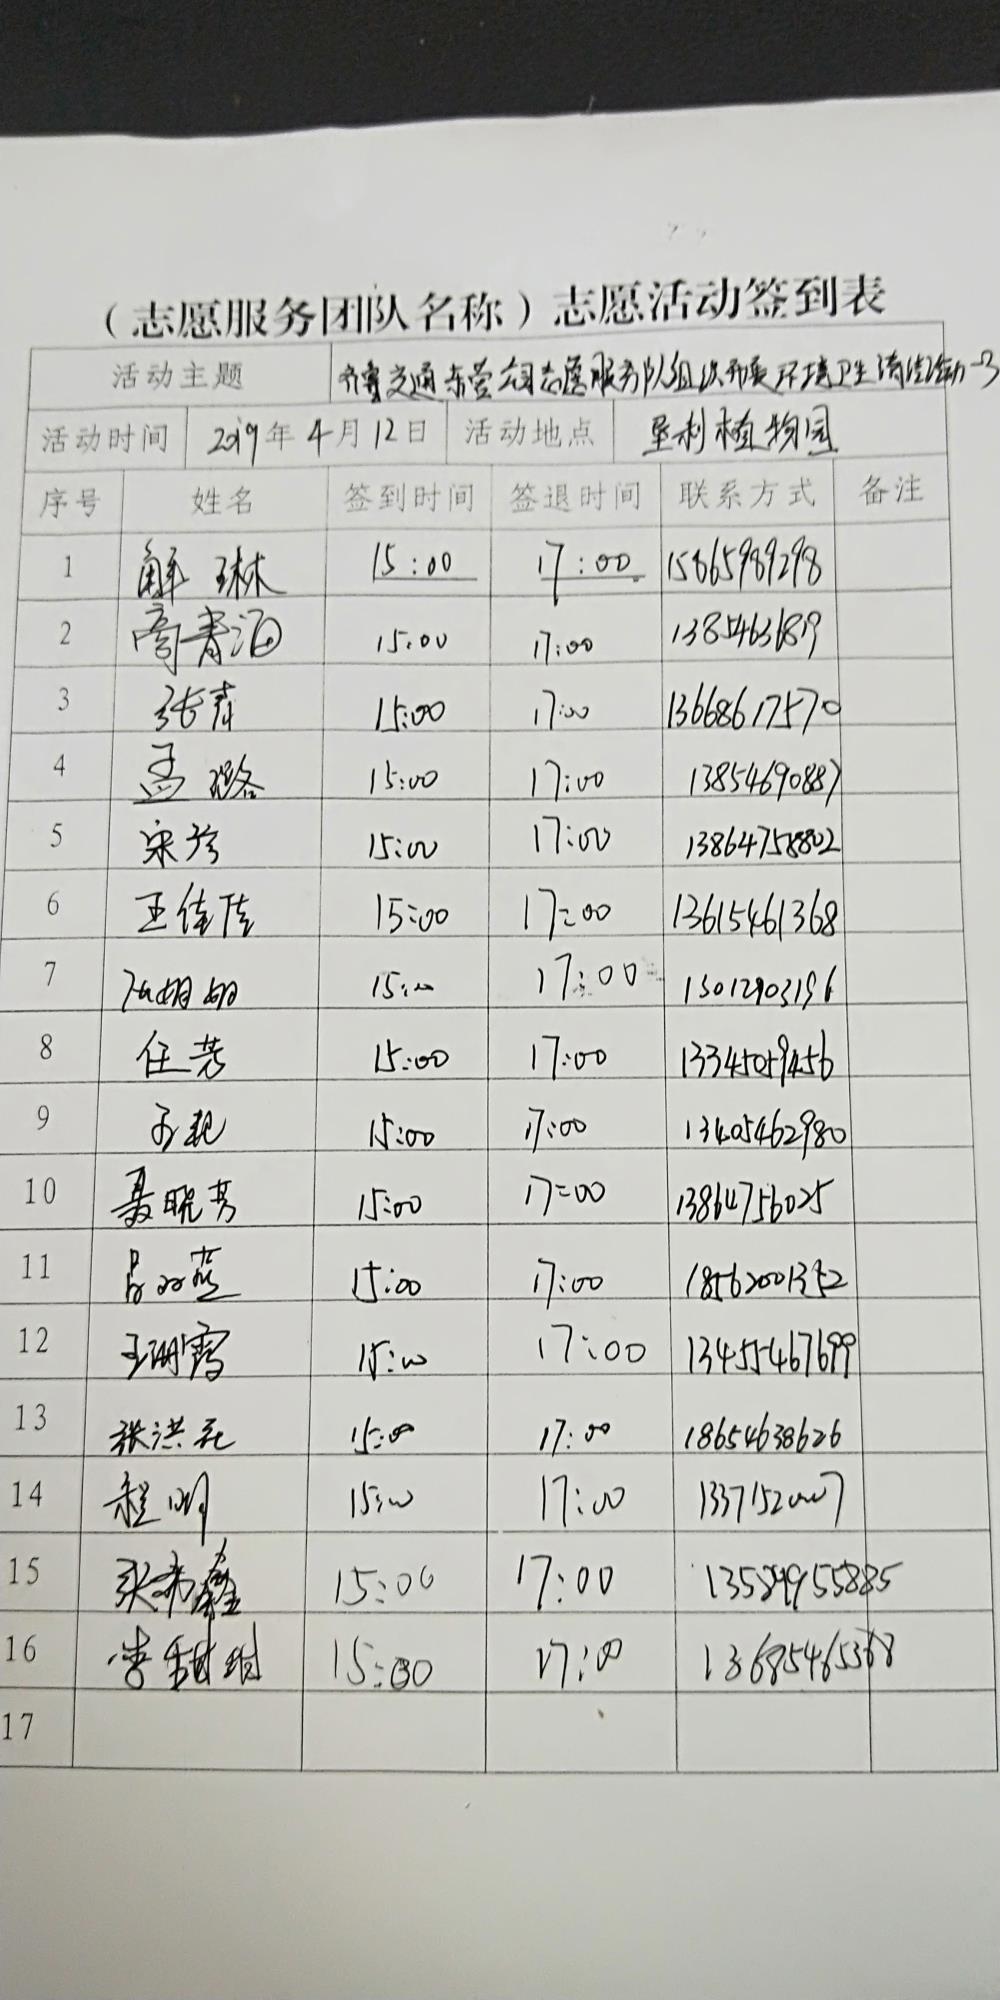 （志愿服务团队名称）志愿活动签到表
活动主题 齐鲁交通东营分公司志愿服务队组织开展环境卫生清洁活动-3
活动时间 2019年4月12日 活动地点 垦利植物园
序号 姓名 签到时间 签退时间 联系方式 备注
1 解琳 15:00 17:00 15865989298
2 商青海 15:00 17:00
3 张青 15:00 17:00 13668617570
4 孟璐 15:00 17:00 13854690887
5 15:00 17:00 13864758802
6 王佳佳 15:00 17:00 13615461368
7 15:00 17:00 15012903196
8 任芳 15:00 17:00 13345059456
9 15:00 17:00 13405462980
10 聂晓芳 15:00 17:00 13864756025
11 15:00 17:00 18562001352
12 15:00 17:00 13455467699
13 张洪 15:00 17:00 18654638626
14 程明 15:00 17:00 13371520007
15 15:00 17:00 13589955885
16 李甜甜 15:00 17:00 13685465368
17